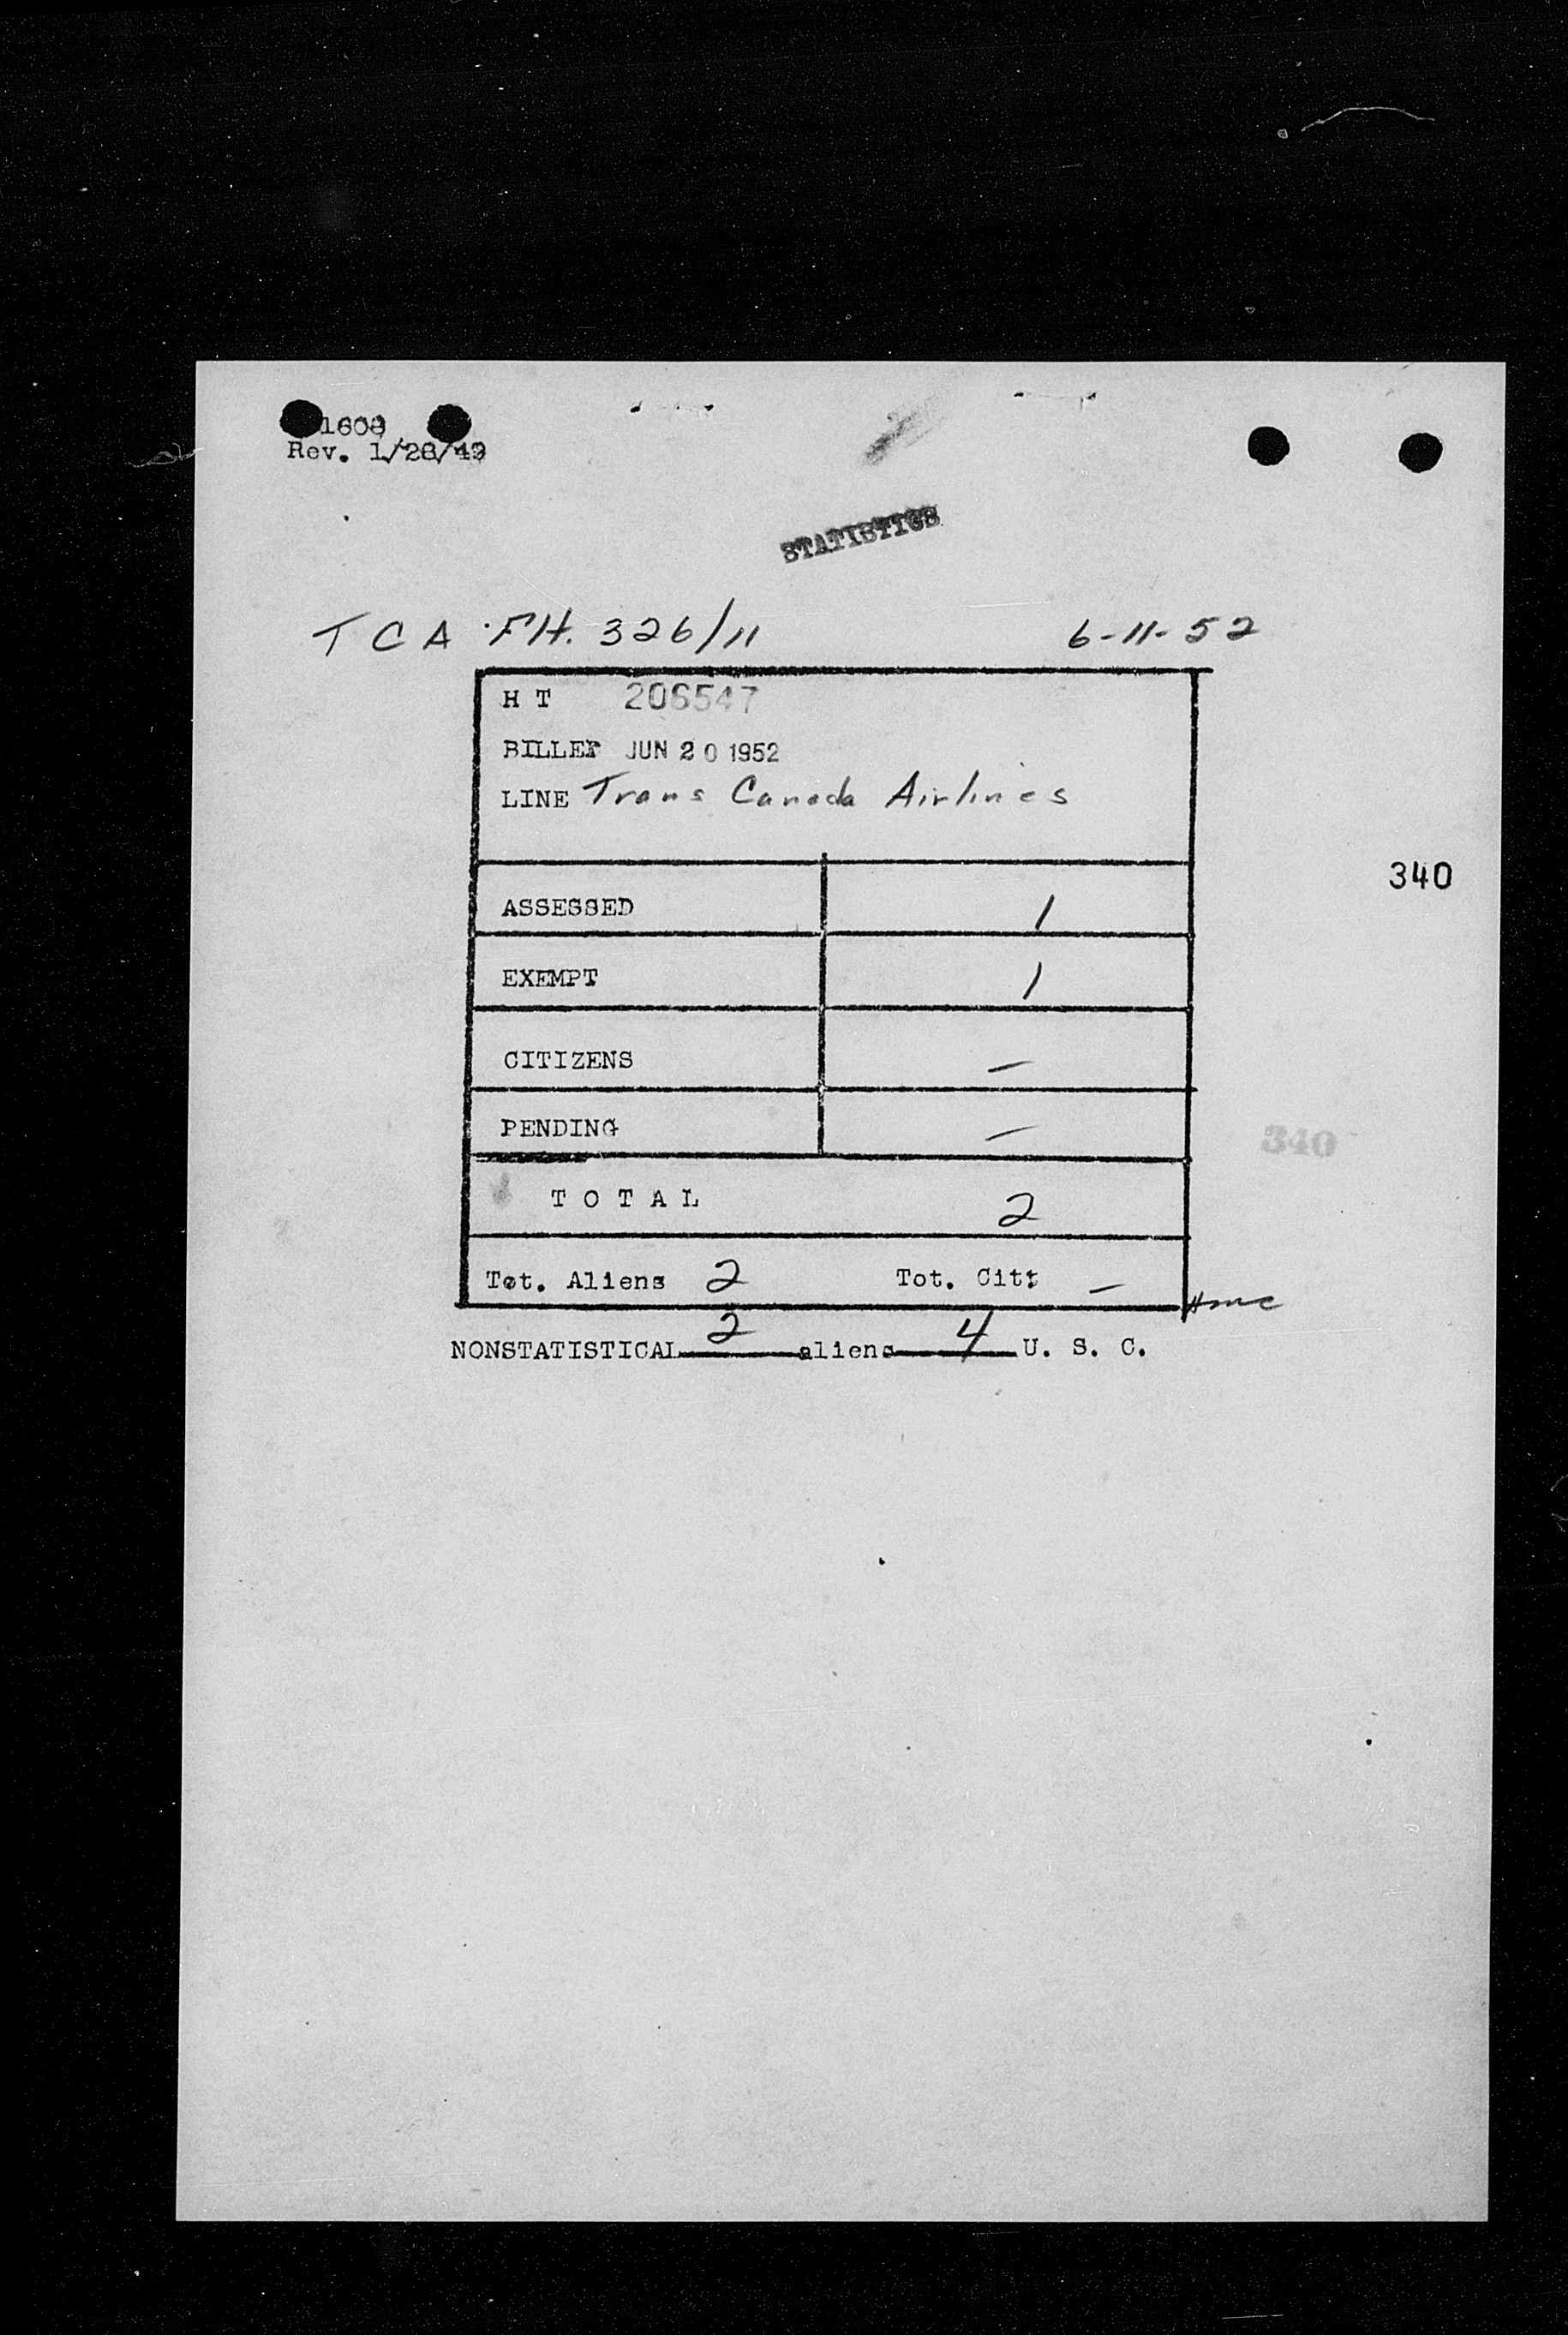 1608
Rev. 1/28/49
STATISTICS
TCA Flt. 326/11 6-11-52
H T 206547
BILLET JUN 20 1952
LINE Trans Canada Airlines
340
ASSESSED 1
EXEMPT 1
CITIZENS —
PENDING —
340
T O T A L 2
Tot. Aliens 2 Tot. Citz —
NONSTATISTICAL 2 aliens 4 U. S. C.